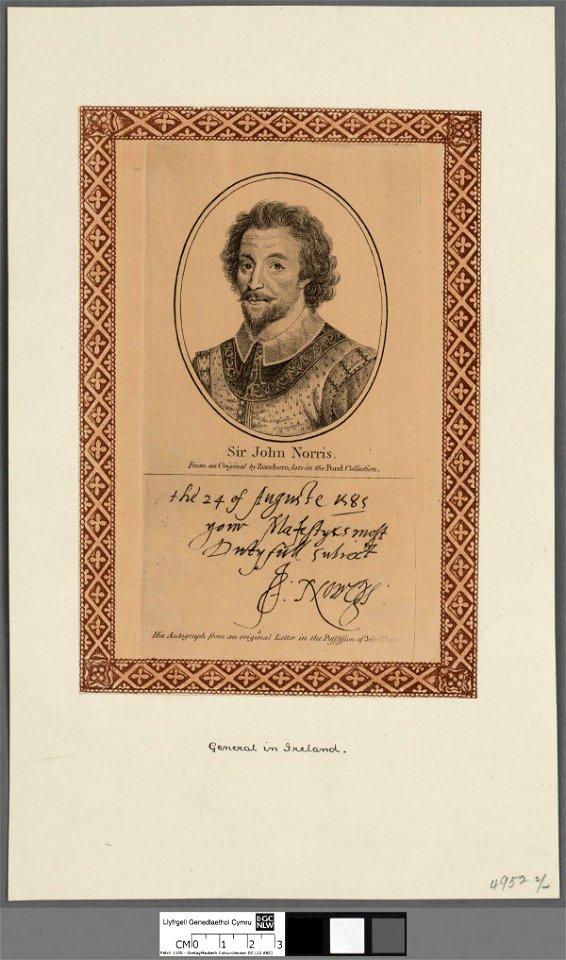 Sir John Norris.
From an Original by Zucchero, late in the Pond Collection.
the 24 of Auguste 1585
your Majestyes most
Dutyfull subiect
J. Norreys.
His Autograph from an original Letter in the Possession of John
General in Ireland.
4952
Llyfrgell Genedlaethol Cymru
LlGC
NLW
CM 0 1 2 3